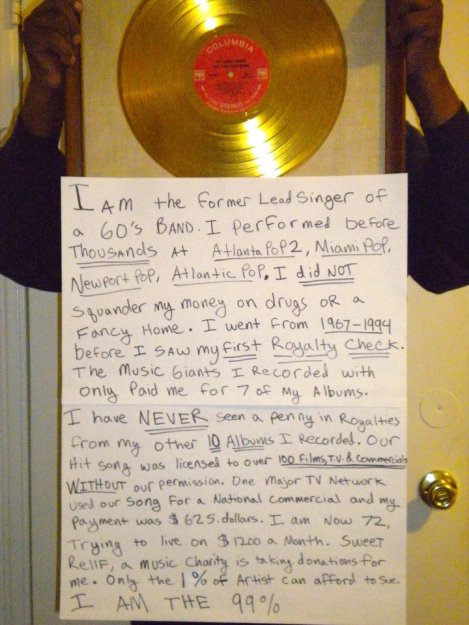 COLUMBIA
STEREO
I AM the former Lead Singer of
a 60's BAND. I performed before
THOUSANDS AT Atlanta POP 2, Miami POP,
Newport POP, Atlantic POP. I did NOT
squander my money on drugs OR a
Fancy Home. I went from 1967-1994
before I saw my first Royalty Check.
The Music Giants I Recorded with
only paid me for 7 of my Albums.
I have NEVER seen a penny in Royalties
from my other 10 Albums I Recorded. Our
Hit song was licensed to over 100 films, T.V. & Commercials
WITHOUT our permission. One Major TV Network
used our song for a National commercial and my
payment was $ 625. dollars. I am now 72,
Trying to live on $1200 a Month. SWEET
RelIF, a music Charity is taking donations for
me. Only the 1% of Artist can afford to sue.
I AM THE 99%